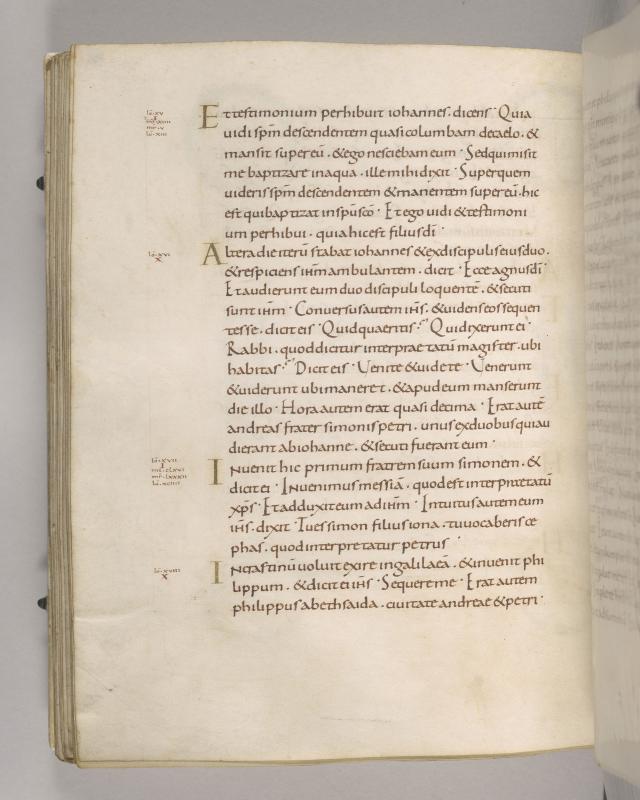 Et testimonium perhibuit iohannes. dicens· Quia
uidi sp̄m descendentem quasi columbam de caelo. &
mansit super eū. & ego nesciebam eum· Sed qui misit
me baptizare in aqua. ille mihi dixit· Super quem
uideris sp̄m descendentem & manentem super eū. hic
est qui baptizat in sp̄u sc̄o· Et ego uidi & testimoni
um perhibui. quia hic est filius dī·
Altera die iterū stabat iohannes & ex discipulis eius duo.
& respiciens ih̄m ambulantem. dicit· Ecce agnus dī·
Et audierunt eum duo discipuli loquentē. & secuti
sunt ih̄m· Conuersus autem ih̄s. & uidens eos sequen
tes se. dicit eis· Quid quaeritis· Qui dixerunt ei·
Rabbi. quod dicitur interpraetatū magister. ubi
habitas· Dicit eis· Uenite & uidete· Uenerunt
& uiderunt ubi maneret. & apud eum manserunt
die illo· Hora autem erat quasi decima· Erat autē
andreas frater simonis petri. unus ex duobus qui au
dierant ab iohanne. & secuti fuerant eum·
lū· xvii
Inuenit hic primum fratrem suum simonem. &
dicit ei· Inuenimus messiā. quod est interpraetatū
xp̄s· Et adduxit eum ad ih̄m· Intuitus autem eum
ih̄s. dixit· Tu es simon filius iona. tu uocaberis ce
phas. quod interpretatur petrus·
In crastinū uoluit exire in galilaeā. & inuenit phi
lippum. & dicit ei ih̄s· Sequere me· Erat autem
philippus a bethsaida. ciuitate andreae & petri·